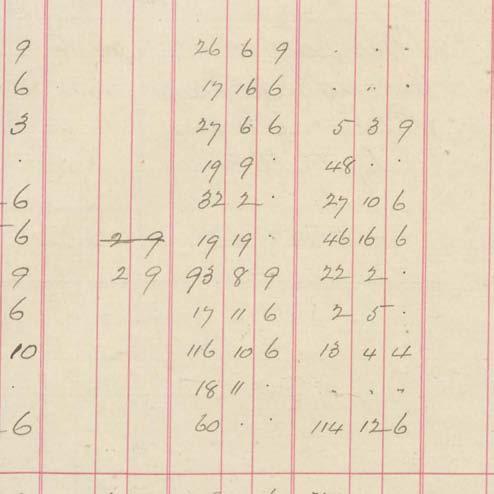 9 26 6 9 . . .
6 17 16 6 . " .
3 27 6 6 5 3 9
. 19 9 . 48 . .
6 32 2 . 27 10 6
6 2 9 19 19 . 46 16 6
9 2 9 93 8 9 22 2 .
6 17 11 6 2 5 .
10 116 10 6 13 4 4
. 18 11 . . . .
6 60 . . 114 12 6